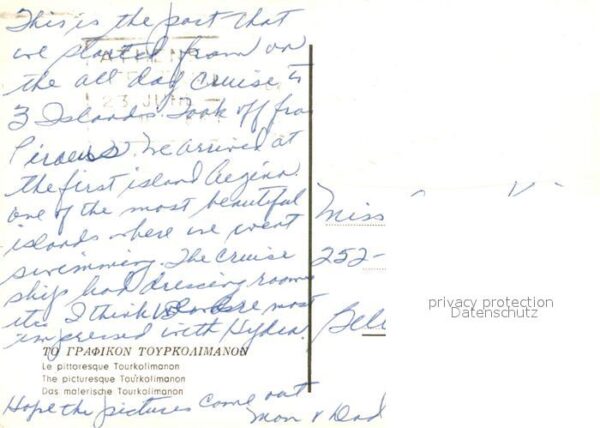 This is the port that
we started from on
the all day cruise to
3 Islands. Took off from
Piraeus. We arrived at
the first island Aegina.
one of the most beautiful
islands where we went
swimming. The cruise
ship had dressing rooms
etc. I think we were most
impressed with Hydra.
ΤΟ ΓΡΑΦΙΚΟΝ ΤΟΥΡΚΟΛΙΜΑΝΟΝ
Le pittoresque Tourkolimanon
The picturesque Tourkolimanon
Das malerische Tourkolimanon
Hope the pictures come out
Mom & Dad
23 JUN
Miss
252-
privacy protection
Datenschutz